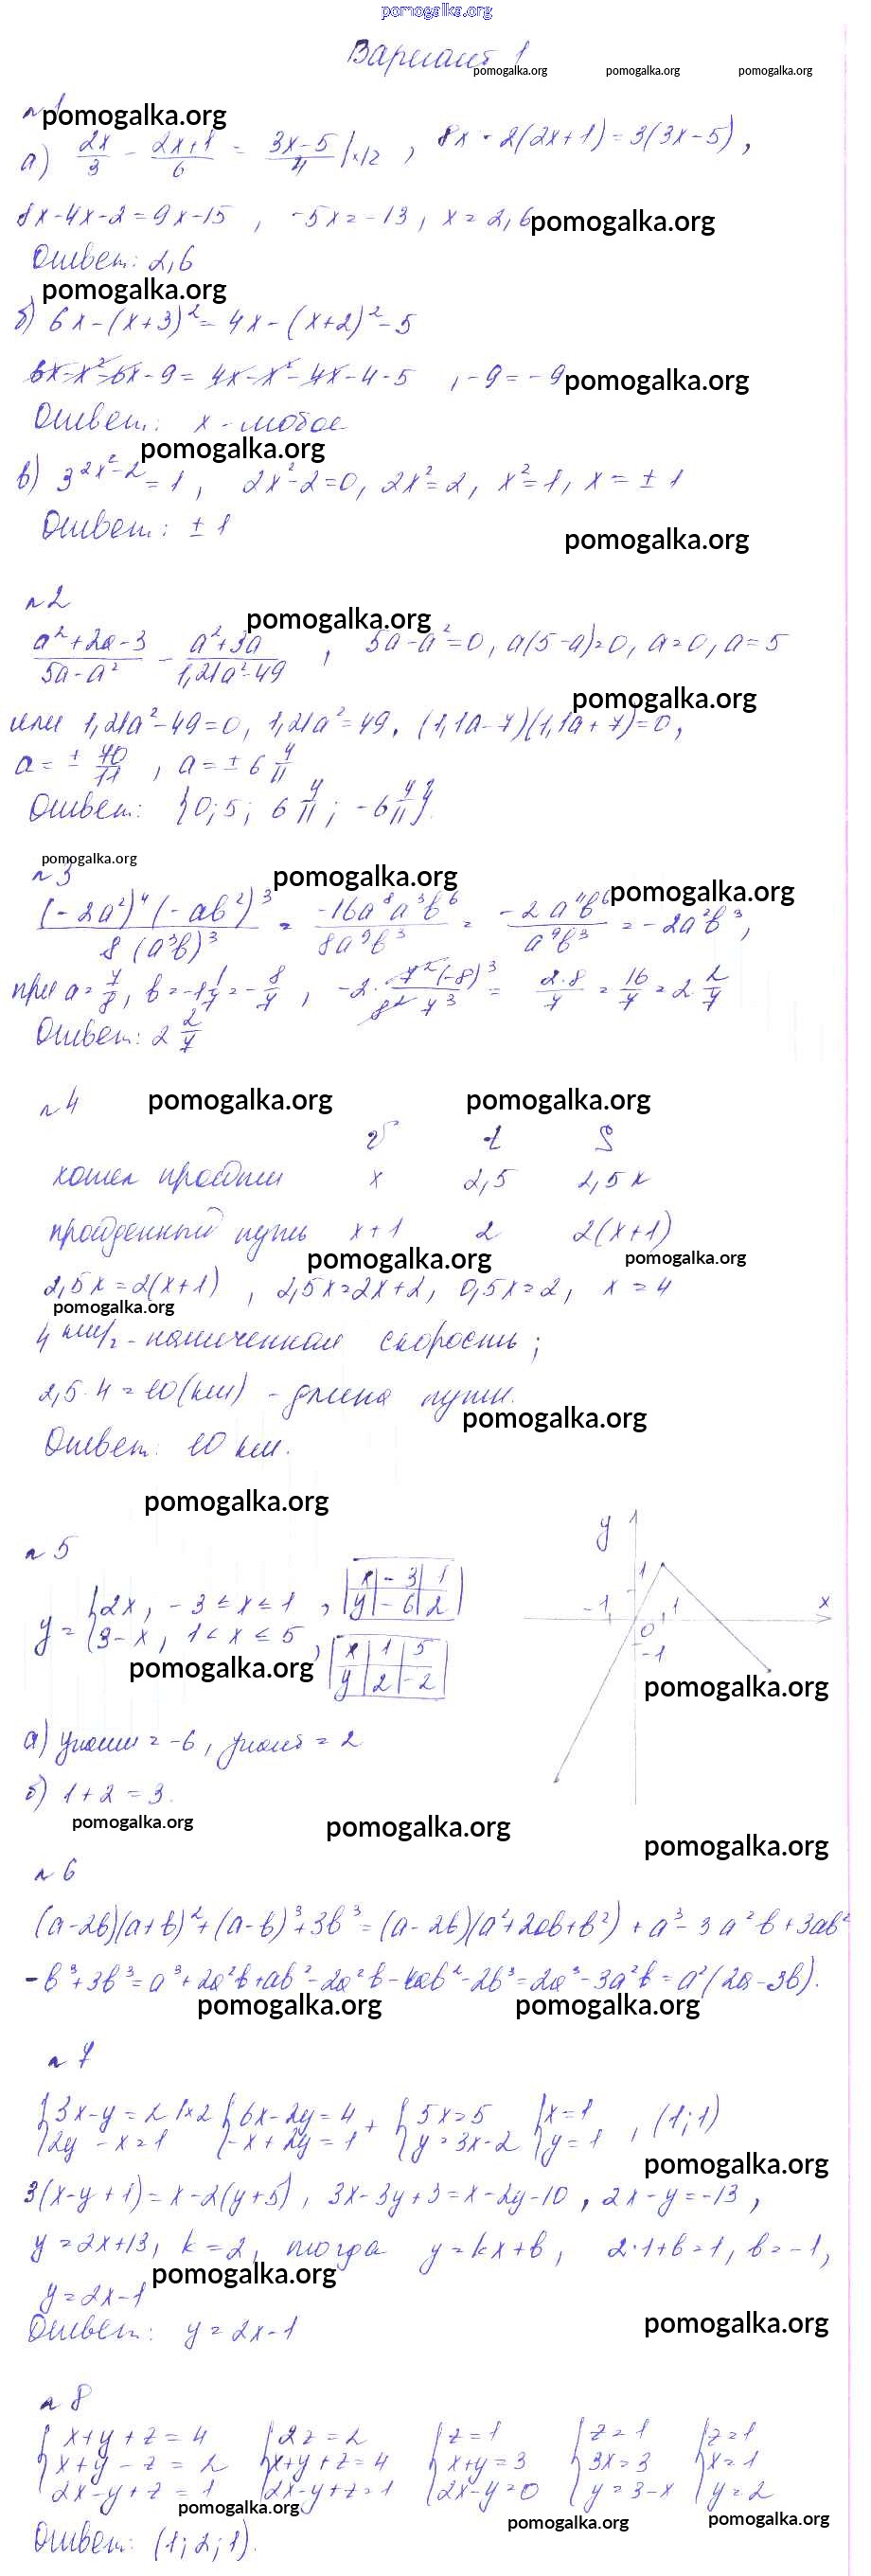 pomogalka.org
Вариант 1
pomogalka.org pomogalka.org pomogalka.org
№1 pomogalka.org
а) 2x/3 - (2x+1)/6 = (3x-5)/4 |×12 , 8x - 2(2x+1) = 3(3x-5),
8x-4x-2=9x-15 , -5x=-13, x=2,6 pomogalka.org
Ответ: 2,6
pomogalka.org
б) 6x-(x+3)²=4x-(x+2)²-5
6x-x²-6x-9=4x-x²-4x-4-5 , -9=-9 pomogalka.org
Ответ: x-любое
pomogalka.org
в) 3^(2x²-2)=1, 2x²-2=0, 2x²=2, x²=1, x=±1
Ответ: ±1
pomogalka.org
№2
pomogalka.org
(a²+2a-3)/(5a-a²) - (a²+3a)/(1,21a²-49) , 5a-a²=0, a(5-a)=0, a=0, a=5
pomogalka.org
или 1,21a²-49=0, 1,21a²=49, (1,1a-7)(1,1a+7)=0,
a=±70/11 , a=±6 4/11
Ответ: {0; 5; 6 4/11; -6 4/11}.
pomogalka.org
№3 pomogalka.org pomogalka.org
(-2a²)⁴(-ab²)³/(8(a³b)³) = -16a⁸a³b⁶/(8a⁹b³) = -2a¹¹b⁶/(a⁹b³) = -2a²b³,
при a=7/8, b=-1 1/7=-8/7 , -2·7²(-8)³/(8²7³) = 2·8/7 = 16/7 = 2 2/7
Ответ: 2 2/7
№4 pomogalka.org pomogalka.org
v t S
хотел пройти x 2,5 2,5x
пройденный путь x+1 2 2(x+1)
pomogalka.org pomogalka.org
2,5x=2(x+1) , 2,5x=2x+2, 0,5x=2, x=4
pomogalka.org
4 км/ч - намеченная скорость;
2,5·4=10(км) - длина пути.
pomogalka.org
Ответ: 10 км.
pomogalka.org
№5
y 1
x -1 1 0 1 -1
y={2x, -3≤x≤1 , x -3 1 y -6 2
3-x, 1<x≤5 , x 1 5 y 2 -2
pomogalka.org pomogalka.org
а) yнаим=-6, yнаиб=2
б) 1+2=3.
pomogalka.org pomogalka.org
pomogalka.org
№6
(a-2b)(a+b)²+(a-b)³+3b³=(a-2b)(a²+2ab+b²)+a³-3a²b+3ab²
-b³+3b³=a³+2a²b+ab²-2a²b-4ab²-2b³=2a³-3a²b=a²(2a-3b).
pomogalka.org pomogalka.org
№7
{3x-y=2 |×2 {6x-2y=4 + {5x=5 {x=1
{2y-x=1 {-x+2y=1 {y=3x-2 {y=1 , (1;1)
pomogalka.org
3(x-y+1)=x-2(y+5), 3x-3y+3=x-2y-10, 2x-y=-13,
y=2x+13, k=2, тогда y=kx+b, 2·1+b=1, b=-1,
pomogalka.org
y=2x-1
Ответ: y=2x-1
pomogalka.org
№8
{x+y+z=4 {2z=2 {z=1 {z=1 {z=1
{x+y-z=2 {x+y+z=4 {x+y=3 {3x=3 {x=1
{2x-y+z=1 {2x-y+z=1 {2x-y=0 {y=3-x {y=2
pomogalka.org pomogalka.org pomogalka.org
Ответ: (1; 2; 1).